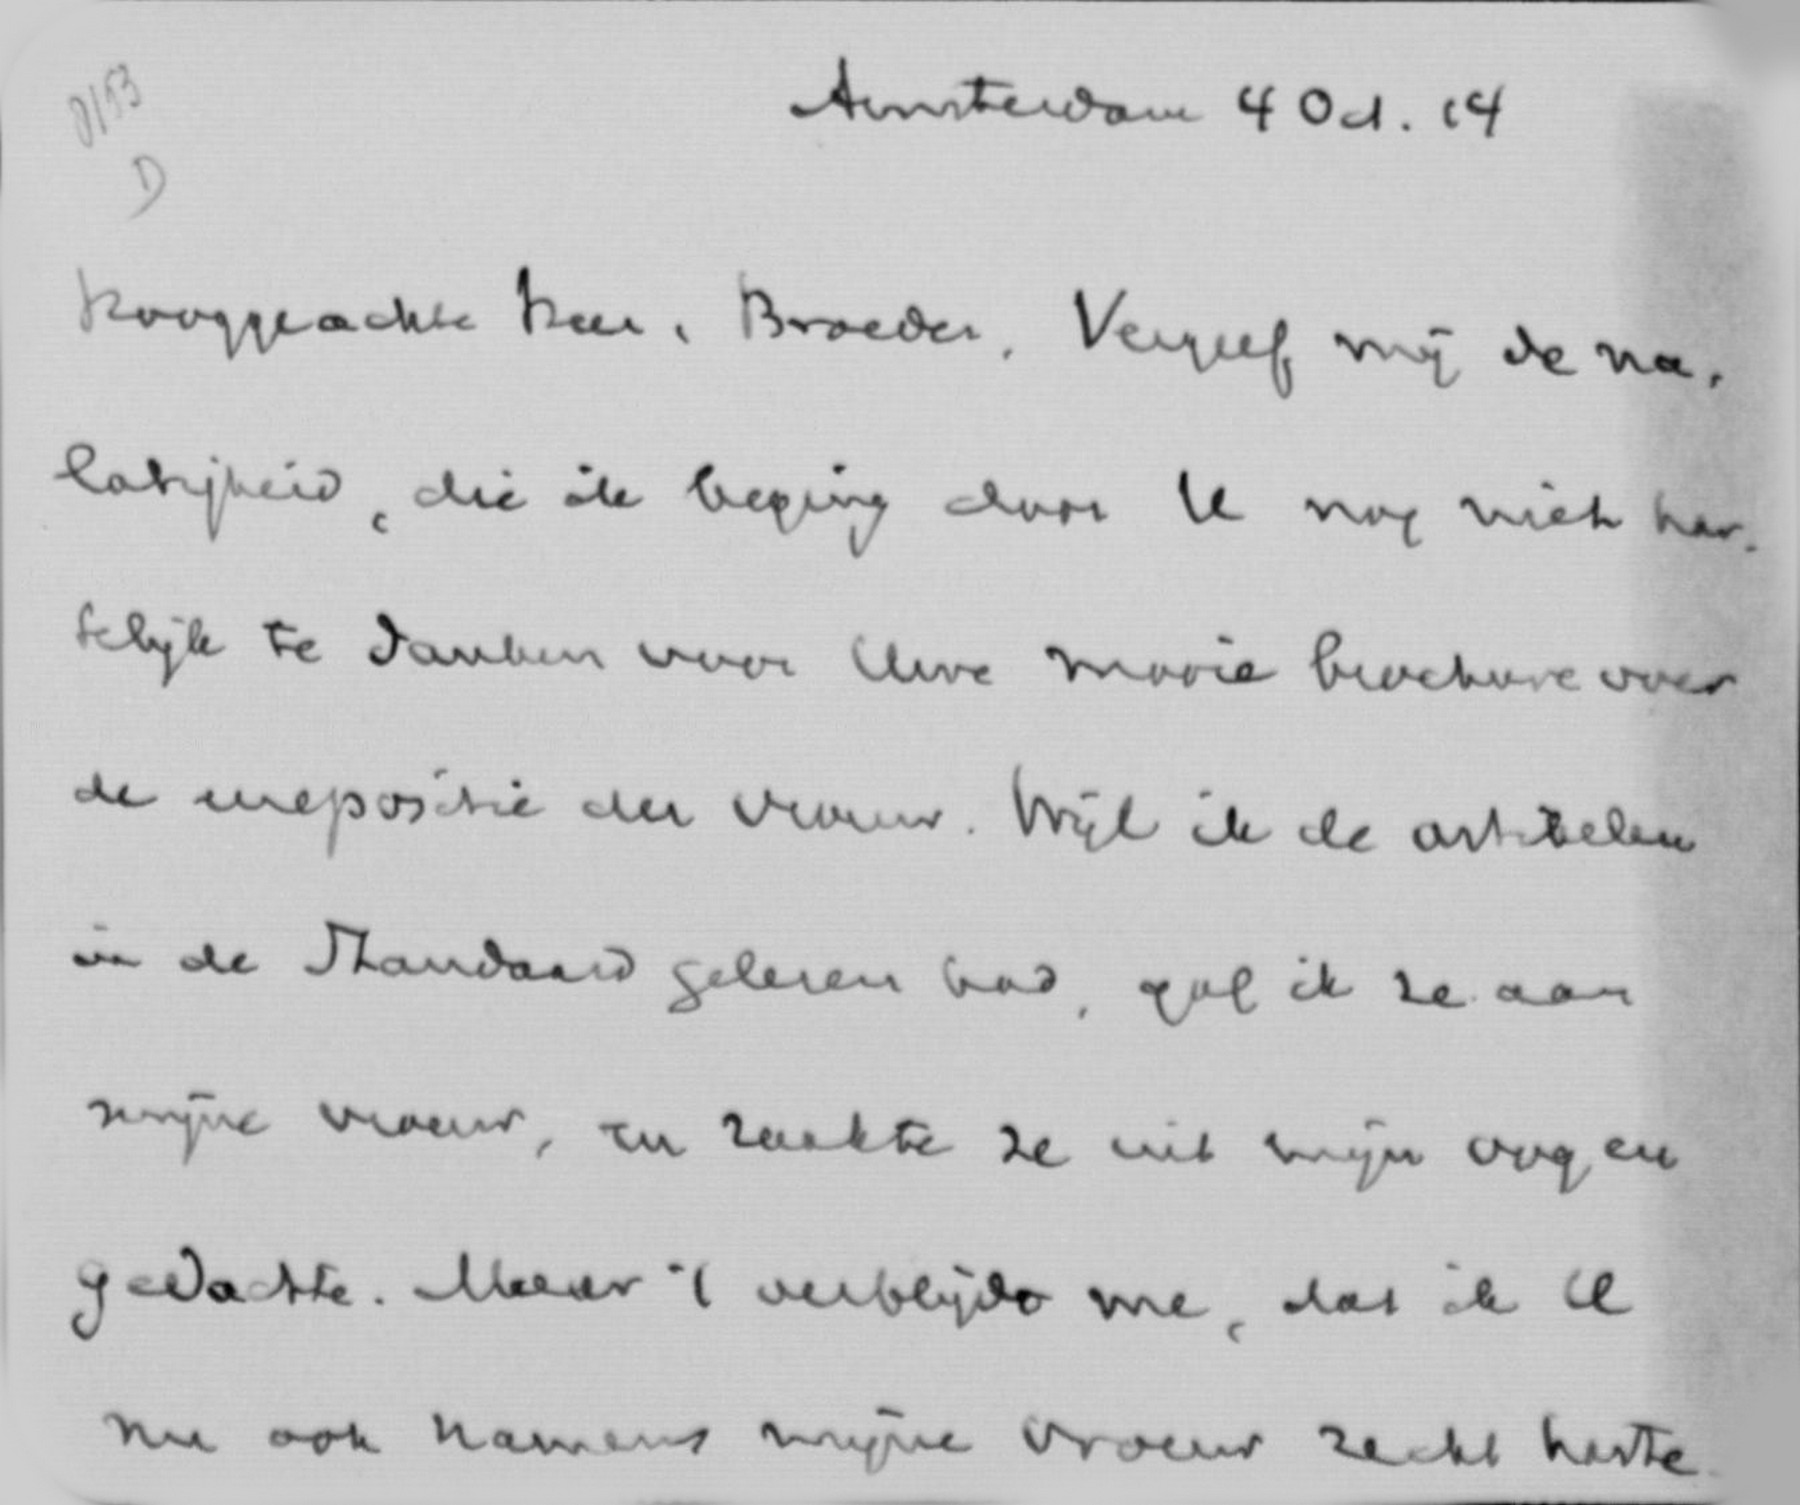 8153
D
Amsterdam 4 Oct. 14
Hooggeachte Heer, Broeder, Vergeef mij de na-
latigheid, die ik beging door U nog niet har-
telijk te danken voor Uwe mooie brochure over
de eerepositie der vrouw. Wijl ik de artikelen
in de Standaard gelezen had, gaf ik ze aan
mijne vrouw, en raakte ze uit mijn oog en
gedachte. Maar 't verblijdt me, dat ik U
nu ook namens mijne vrouw recht harte-